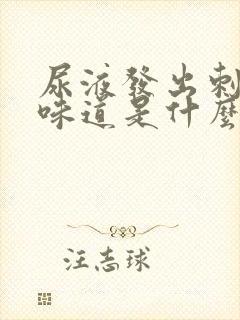 尿液發出刺
味道是什麼
汪志球